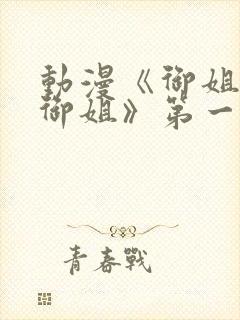 動漫《御姐
御姐》第一
青春戰